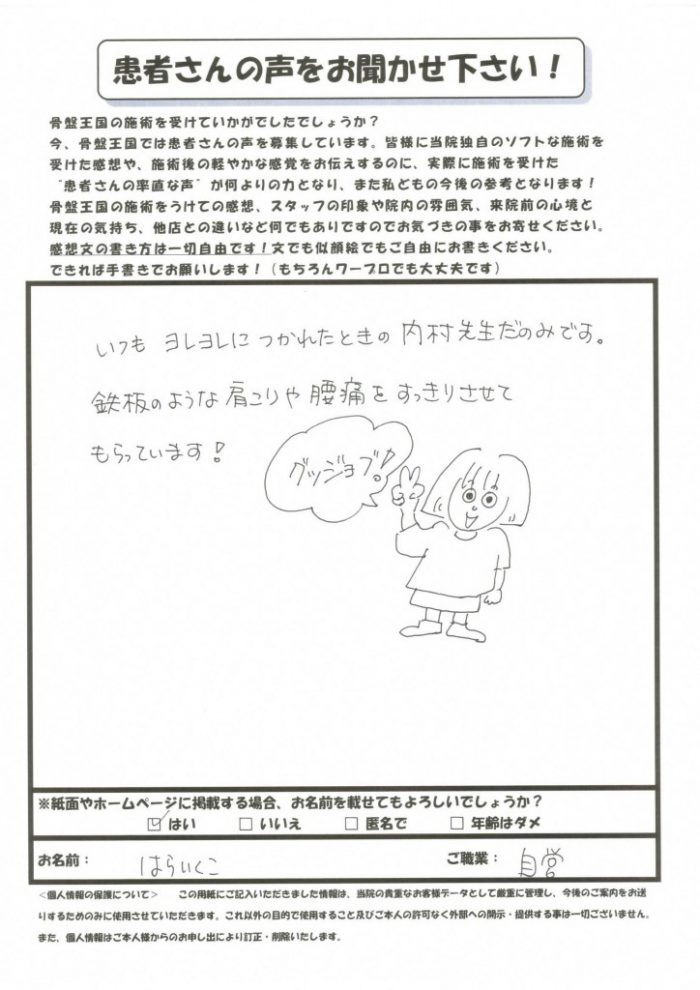 患者さんの声をお聞かせ下さい！
骨盤王国の施術を受けていかがでしたでしょうか？
今、骨盤王国では患者さんの声を募集しています。皆様に当院独自のソフトな施術を
受けた感想や、施術後の軽やかな感覚をお伝えするのに、実際に施術を受けた
“患者さんの率直な声”が何よりの力となり、また私どもの今後の参考となります！
骨盤王国の施術をうけての感想、スタッフの印象や院内の雰囲気、来院前の心境と
現在の気持ち、他店との違いなど何でもありですのでお気づきの事をお寄せください。
感想文の書き方は一切自由です！文でも似顔絵でもご自由にお書きください。
できれば手書きでお願いします！（もちろんワープロでも大丈夫です）
いつも ヨレヨレに つかれたときの 内村先生だのみです。
鉄板のような肩こりや腰痛をすっきりさせて
もらっています！
グッジョブ！
※紙面やホームページに掲載する場合、お名前を載せてもよろしいでしょうか？
☑はい □いいえ □匿名で □年齢はダメ
お名前： はらいくこ ご職業： 自営
＜個人情報の保護について＞ この用紙にご記入いただきました情報は、当院の貴重なお客様データとして厳重に管理し、今後のご案内をお送
りするためのみに使用させていただきます。これ以外の目的で使用すること及びご本人の許可なく外部への開示・提供する事は一切ございません。
また、個人情報はご本人様からのお申し出により訂正・削除いたします。